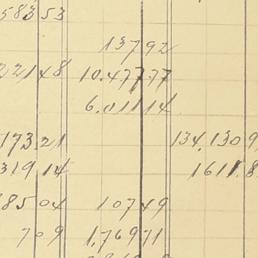 58353
13792
22148 10.47777
6.01114
17321 134,1309
31914 1611.8
38504 10749
709 1,76971